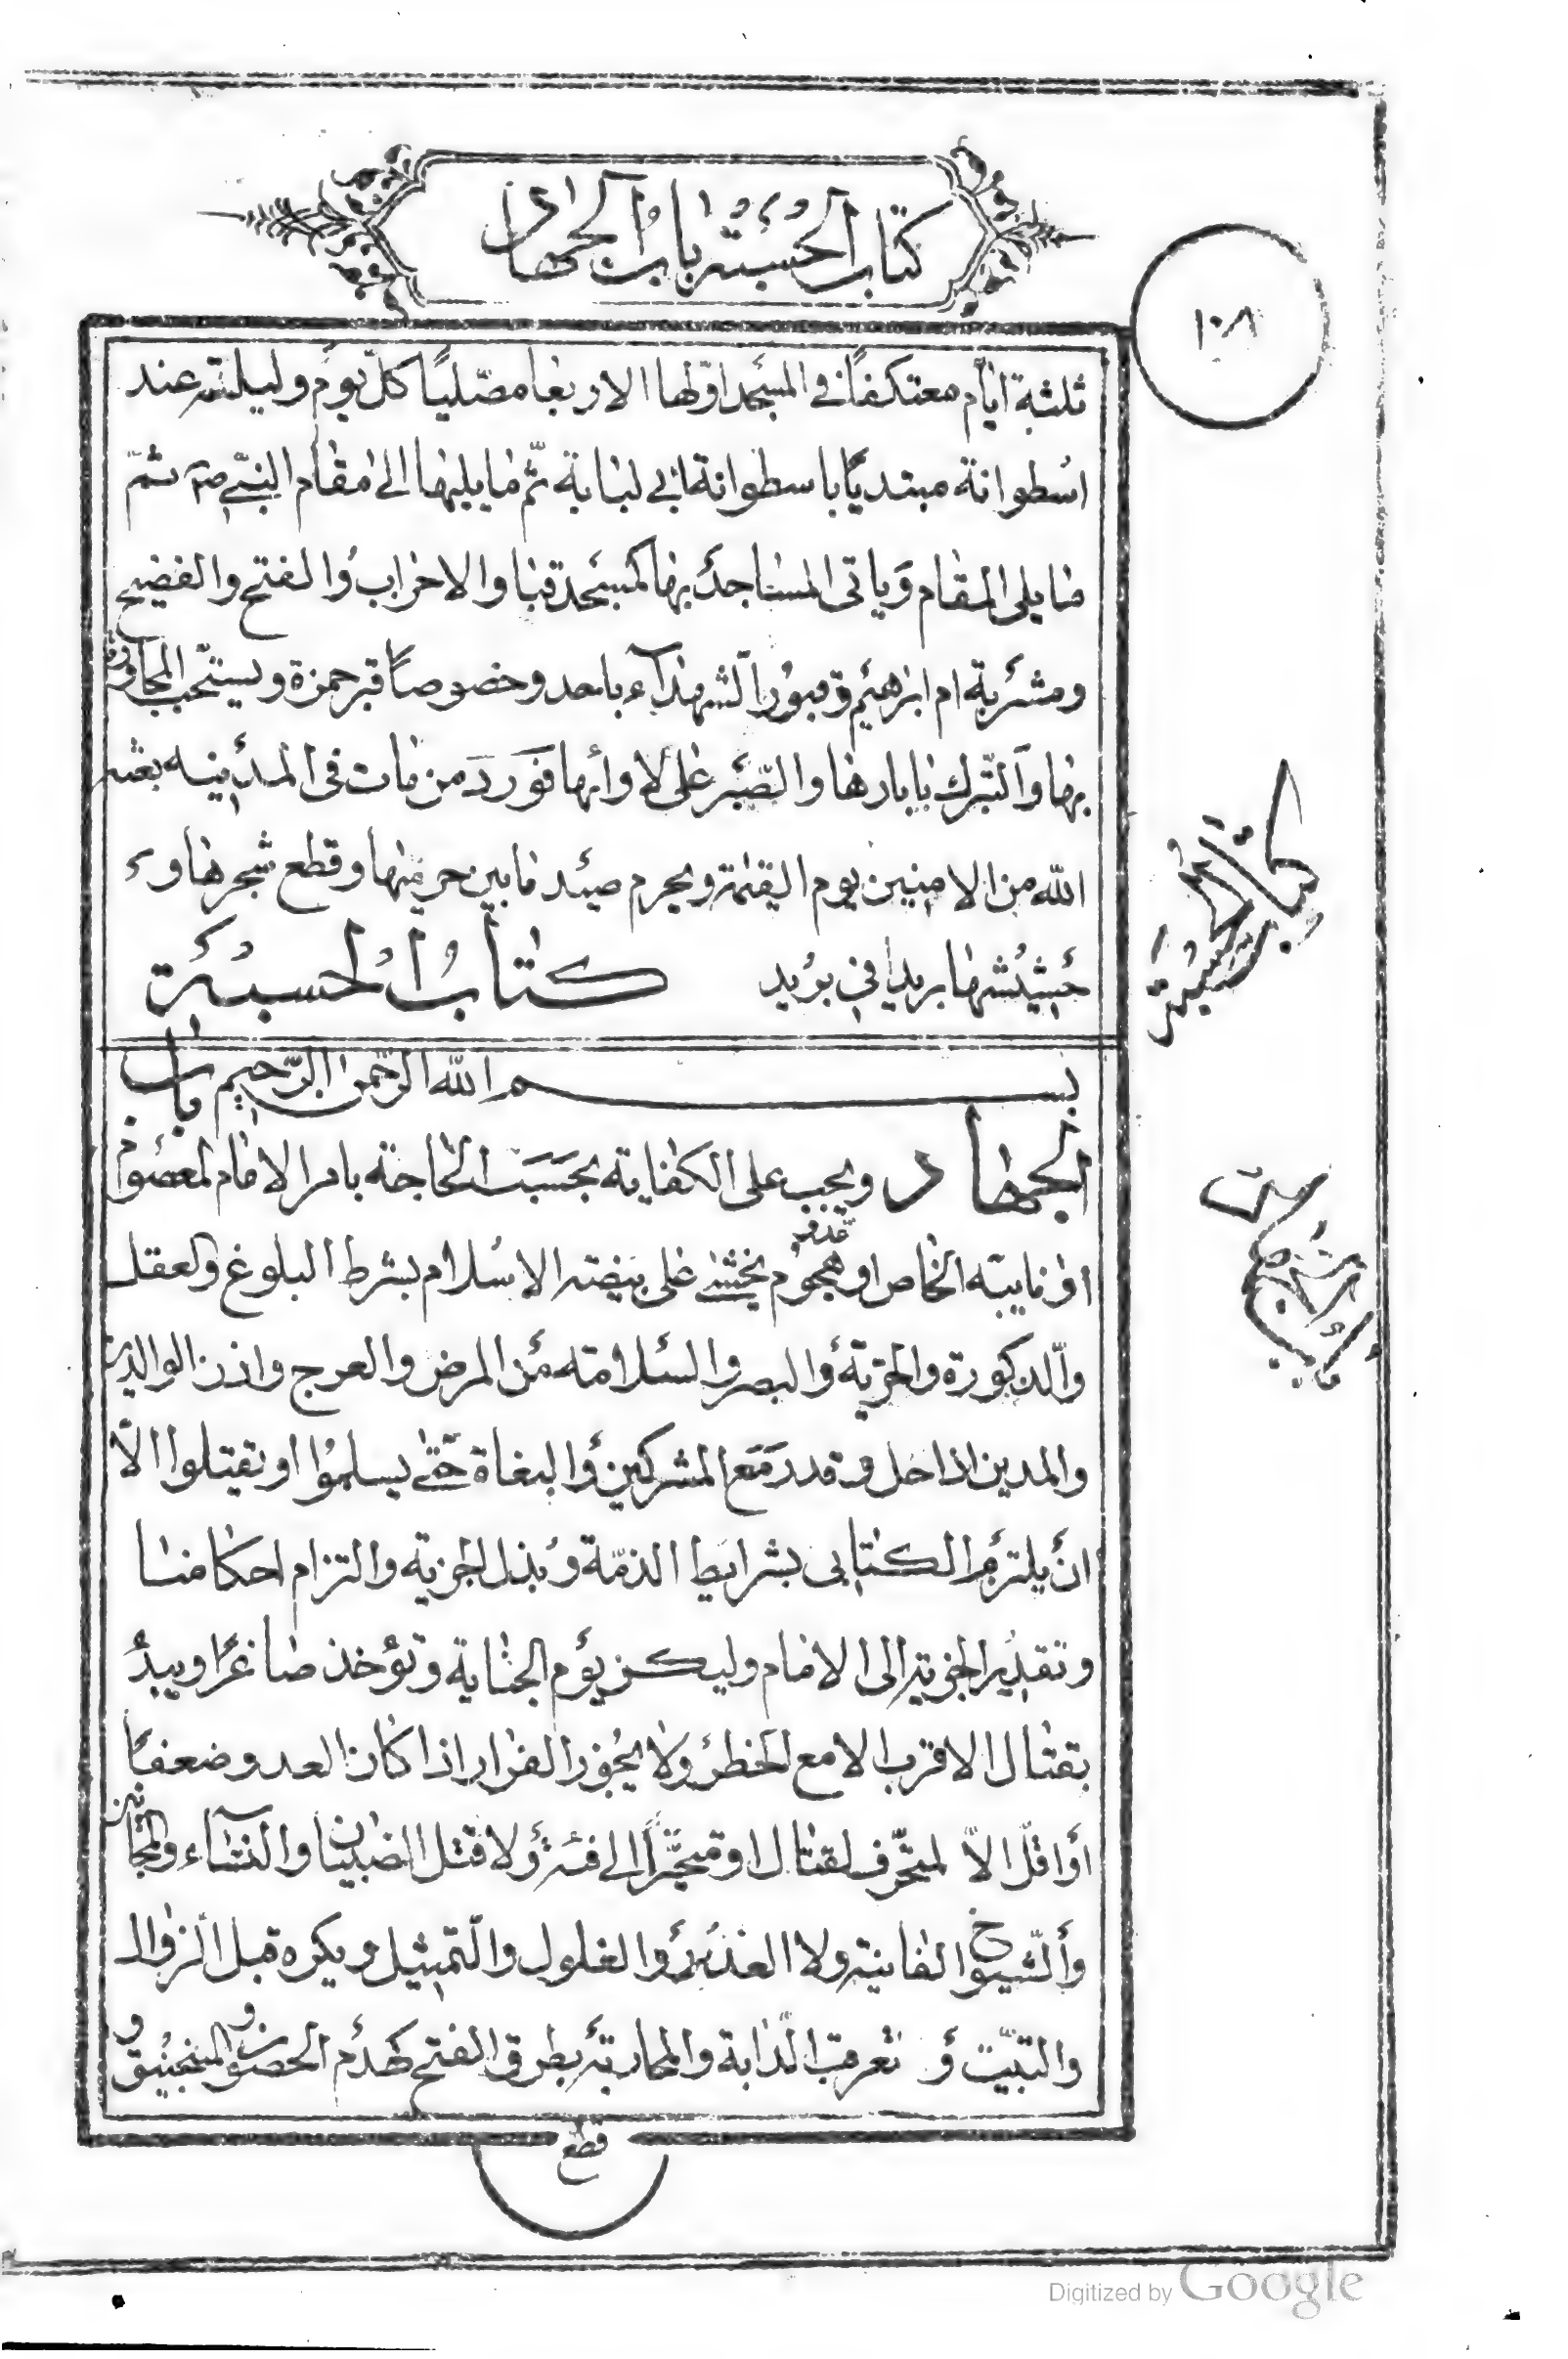 كتاب الحسبة باب الجهاد
١٠٨
ثلثة ايّام معتكفاً في المسجد اوّلها الاربعا مصّليًا كلّ يوم وليلته عند
اسطوانة مبتديًا باسطوانة ابي لبابة ثّم ما يليها الى مقام النبّي ص ثمّ
ما يلى المقام وياتى المساجد بها كمسجد قبا والاحزاب والفتح والفضيح
ومشربة ام ابرهيم وقبور الشهدآء باحد وخصوصاً قبر حمزة ويستحّب المجاورة
بها والتبّرك بابارها والصّبر على لاوائها فورد من مات فى المدينه بعثه
الله من الامنين يوم القيمة ويحرم صيد ما بين حرميها وقطع شجرها و
حشيشها بريدا في بريد كتاب الحسبة
بسم الله الرّحمن الرّحيم باب
الجهاد ويجب على الكفاية بحسب الحاجة بامر الامام المعصوم
او نايبه الخاص او هجوم عدو يخشى على بيضة الاسلام بشرط البلوغ والعقل
والّذكورة والحرّية والبصر والسلامة من المرض والعرج واذن الوالدين
والمدين اذا حل وقدر مع المشركين والبغاة حتّى يسلموا او يقتلوا الّا
ان يلتزم الكتابى بشرايط الذمّة وبذل الجزية والتزام احكامنا
وتقدير الجزية الى الامام وليكن يوم الجناية وتؤخذ صاغرًا ويبدُ
بقتال الاقرب الا مع الخطر ولا يجوز الفرار اذا كان العدو ضعفًا
او اقلّ الاّ لمتحّرف لقتال او متحيّزاً الى فئة ولا قتل الصبيان والنسآء والمجانين
والشّيوخ الفانية ولا الغدر والغلول والتّمثيل ويكره قبل الزوال
والتبيّت و تعرقب الّدابة والمحاربة بطرق الفتح كهدم الحصون والمنجنيق و
قطع
كتاب الحسبة
باب الجهاد
Digitized by Google